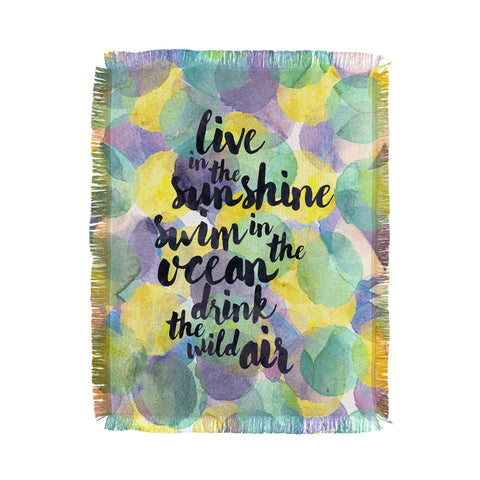 live
in the
sunshine
swim in the
ocean
drink
the wild air